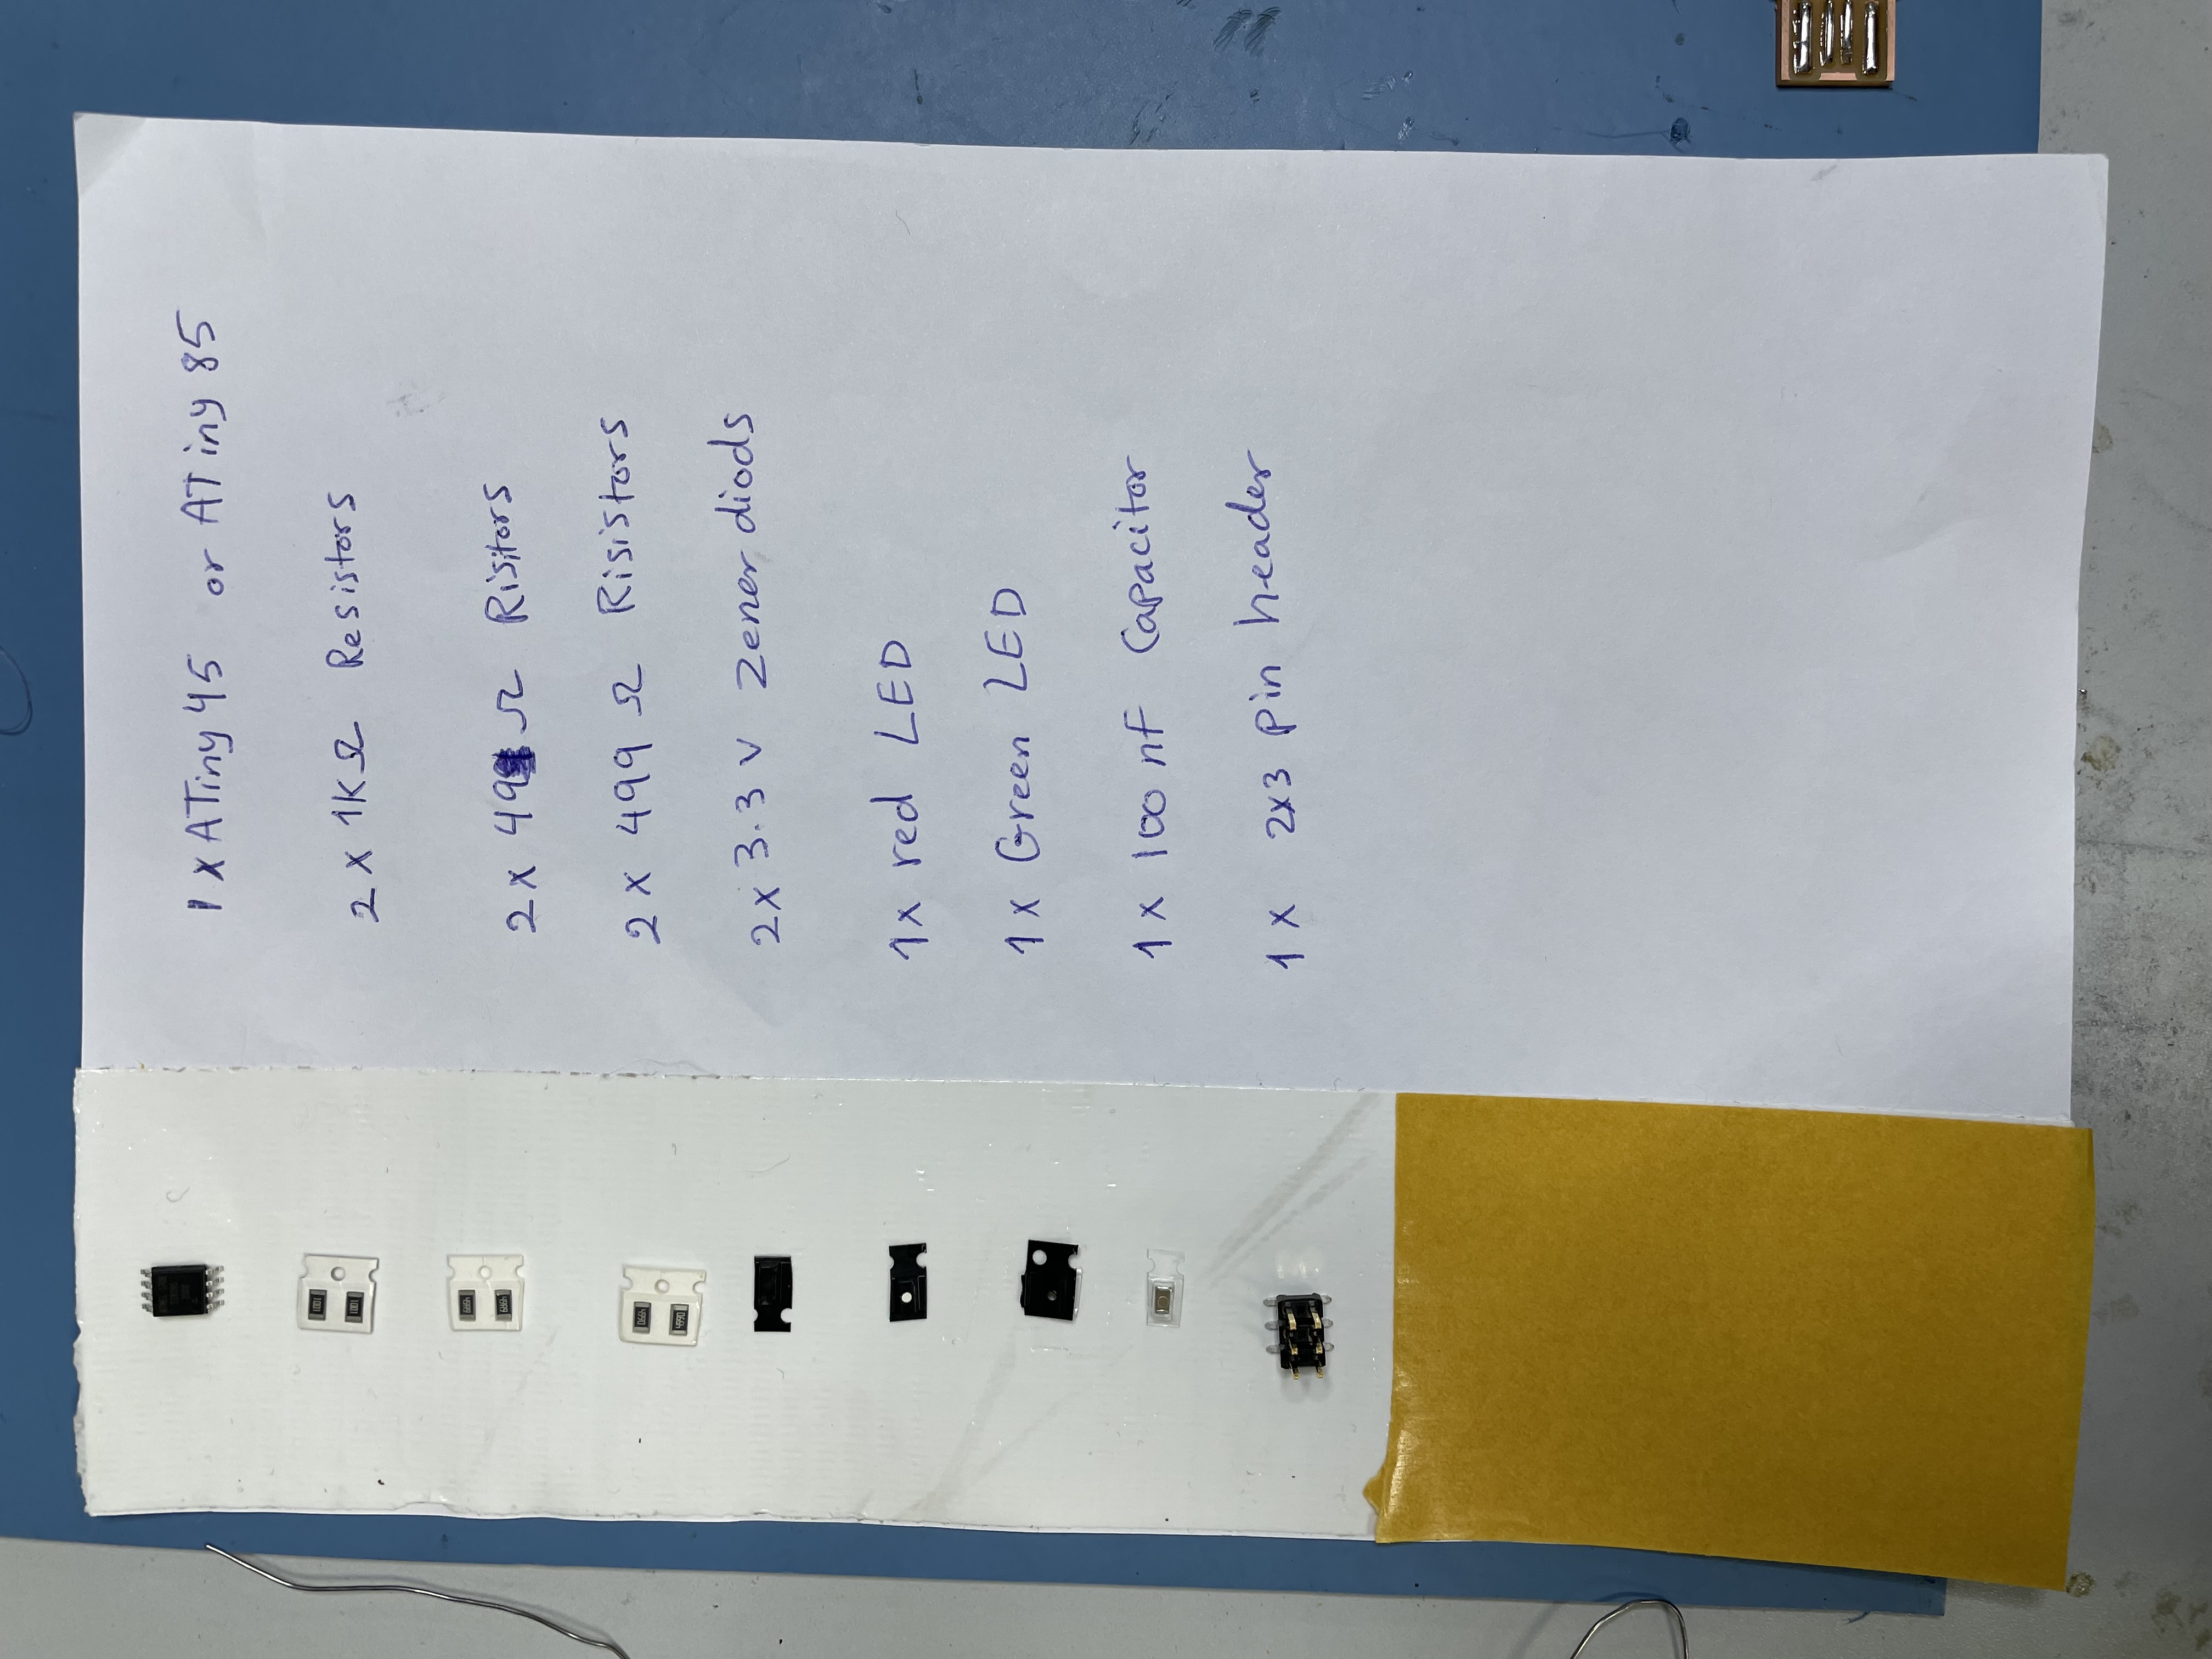 1 x ATiny 45 or ATiny 85
1001
1001
2 x 1K Ω Resistors
2 x 49 Ω Risitors
2 x 499 Ω Risistors
4990
2 x 3.3 V Zener diods
1x red LED
1x Green LED
1 x 100 nF Capacitor
1 x 2x3 pin header